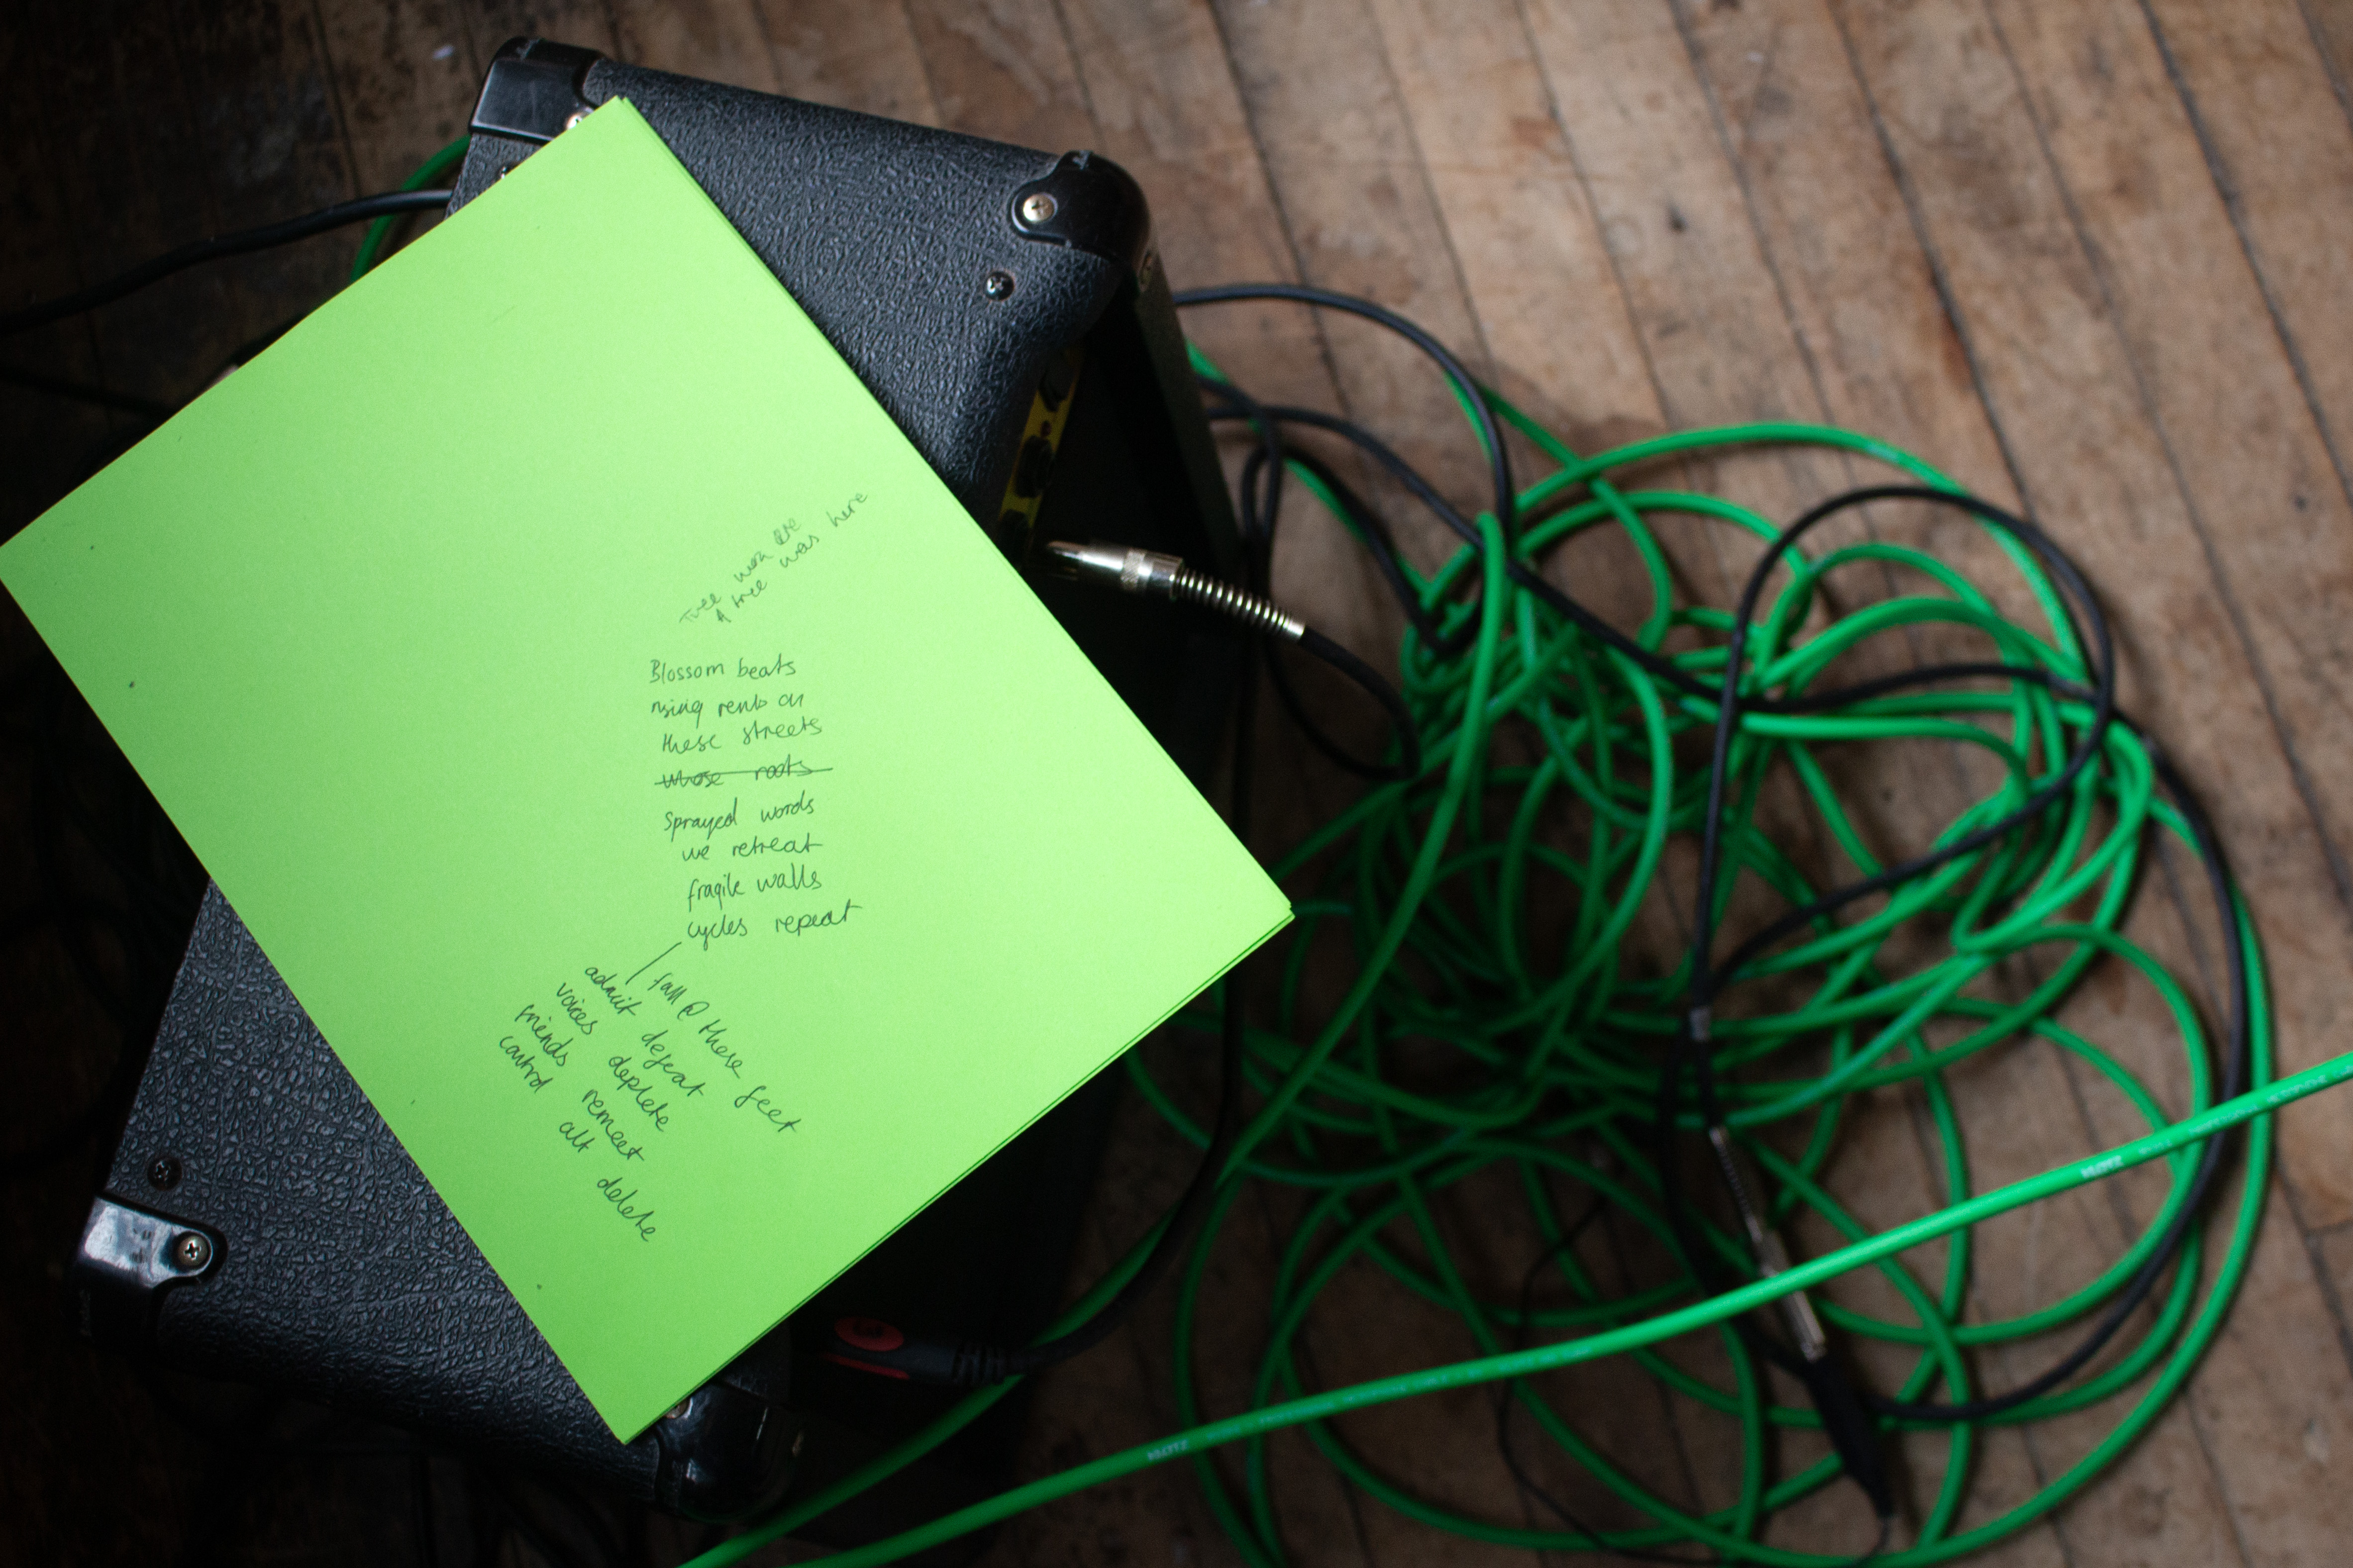 Tree was here
A tree was here
Blossom beats
rising rents on
these streets
whose roots
Sprayed words
we retreat
fragile walls
cycles repeat
fall @ these feet
admit defeat
voices deplete
friends remeet
control alt delete
KLOTZ
KLOTZ